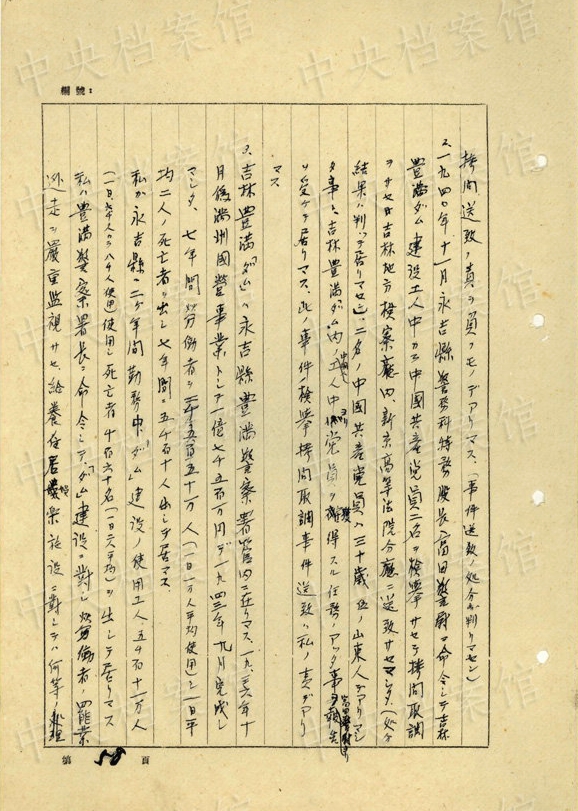 中央档案馆
欄號:
拷問送致ノ責ヲ負フモノデアリマス、(事件送致ノ処分ガ判リマセン)
2.一九四〇年十一月永吉縣警務科特務股長富田警尉ニ命令シテ吉林
豊満ダム建設工人中カラ中國共産党員二名ヲ検擧サセテ拷問取調
ヲナセ吉林地方検察廳内、新京高等法院分廳ニ送致サセマシタ(処分
結果ハ判ッテ居リマセン)、二名ノ中國共産党員ハ三十歳位ノ山東人デアリマシ
タ事ト吉林豊満ダム内ノ工人中ヨリ党員ヲ獲得スル任務ノアッタ事ヲ報告
ヲ受ケテ居リマス、此ノ事件ノ検擧拷問取調事件送致ハ私ノ責デアリ
マス
3.吉林豊満ダムハ永吉縣豊満警察署管内ニ在リマス、一九三六年十
月偽満州國営事業トシテ一億七千五百万円デ一九四三年九月完成シ
マシタ、七年間労働者ヲ二千五百五十万人(一日一万人平均使用)シ一日平
均二人ノ死亡者ヲ出シ七年間ニ五千百十人出シテ居マス
私ガ永吉縣ニ二ケ年間勤務中、ダム建設ノ使用工人五百六十一万人
使用シ死亡者千百六十名(一日六平均)ヲ出シテ居リマス
私ハ豊満警察署長ニ命令シテダム建設ニ對シ労働者ノ罷業
逃走ヲ嚴重監視サセ、給養住居娯楽施設ニ對シテハ何等ノ処理
第 58 頁